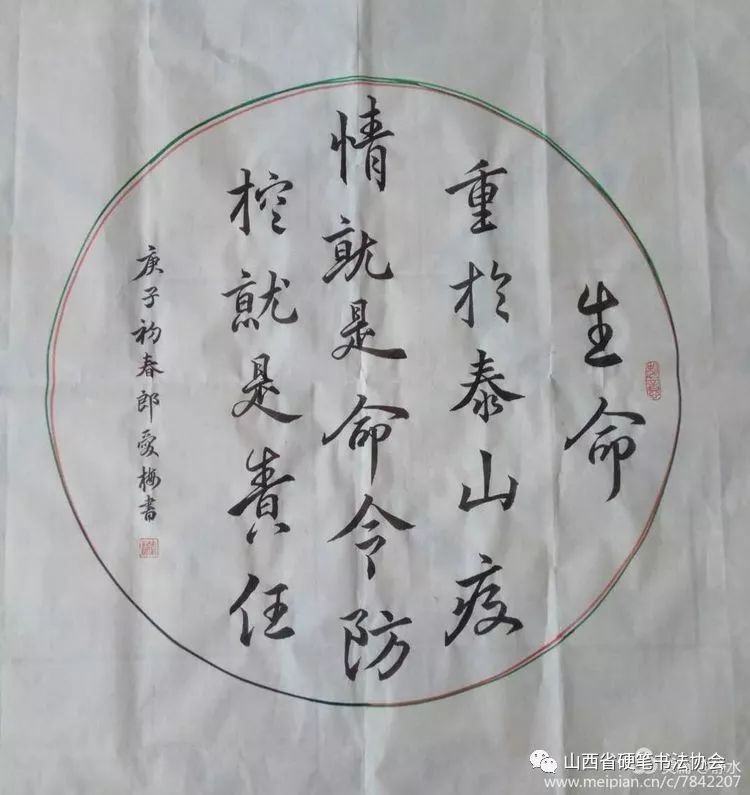 生命
重於泰山疫
情就是命令防
控就是責任
庚子初春郎愛梅書
山西省硬笔书法协会
www.meipian.cn/c/7842207